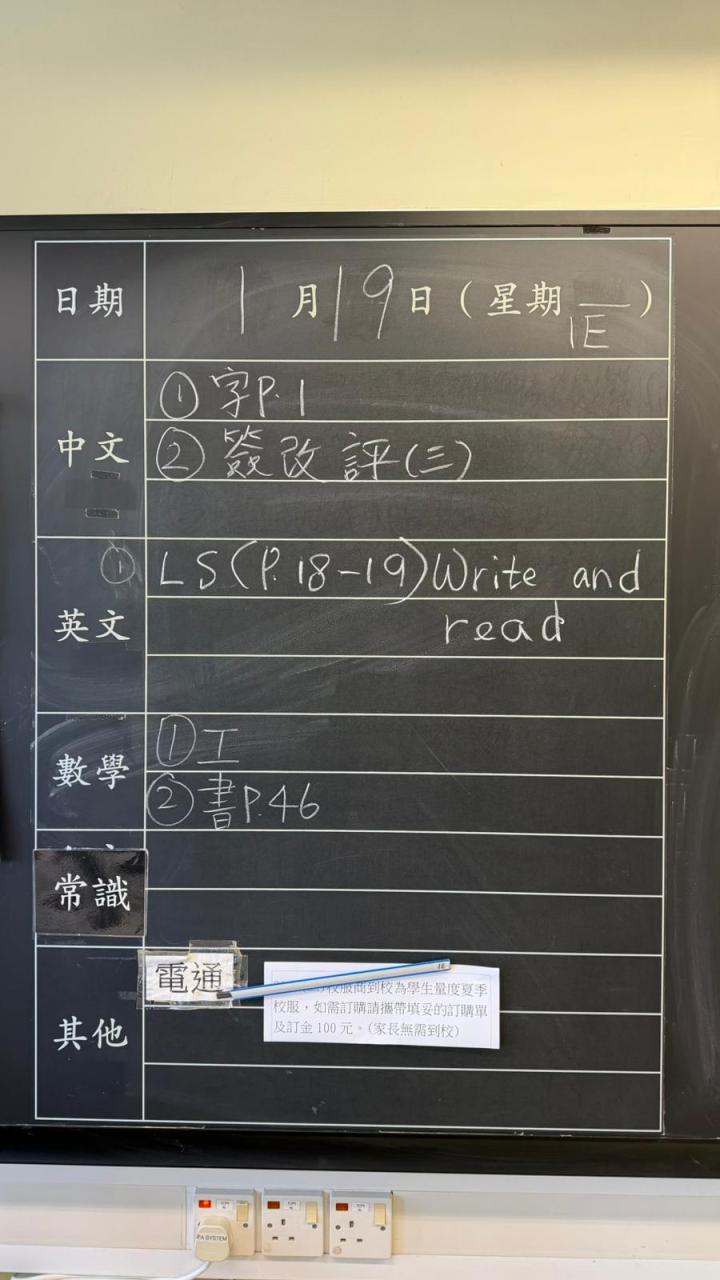 日期 1月19日（星期__）
1E
中文
① 字P.1
② 簽改評(三)
英文
① LS(P.18-19) Write and
read
數學
① 工
② 書P.46
常識
其他
電通
校服商到校為學生量度夏季
校服，如需訂購請攜帶填妥的訂購單
及訂金100元。(家長無需到校)
PA SYSTEM